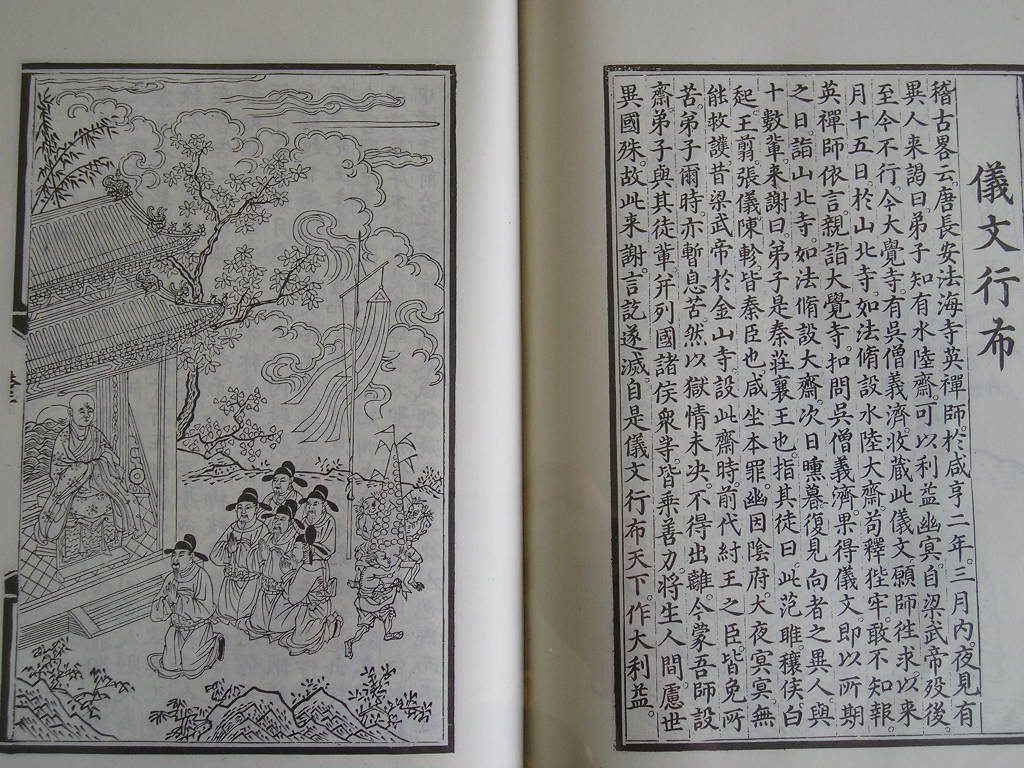 儀文行布
稽古畧云。唐長安法海寺英禪師。於咸亨二年。三月內。夜見有
異人来謁曰。弟子知有水陸齋。可以利益幽冥。自梁武帝歿後。
至今不行。今大覺寺。有吳僧義濟。收蔵此儀文。願師徃求。以来
月十五日。於山北寺。如法脩設水陸大齋。苟釋狴牢。敢不知報。
英禪師依言。親詣大覺寺。扣問吳僧義濟。果得儀文。即以所期
之日。詣山北寺。如法脩設大齋。次日曛暮。復見向者之異人。與
十數輩来謝曰。弟子是秦莊襄王也。指其徒曰。此范睢。穰侯。白
起。王翦。張儀。陳軫。皆秦臣也。咸坐本罪。幽囚陰府。大夜冥冥。無
能救護。昔梁武帝於金山寺。設此齋時。前代紂王之臣。皆免所
苦。弟子爾時。亦暫息苦。然以獄情未决。不得出離。今蒙吾師設
齋。弟子與其徒輩。并列國諸侯衆等。皆乘善力。將生人間。慮世
異國殊。故此来謝。言訖遂滅。自是儀文行布天下。作大利益。